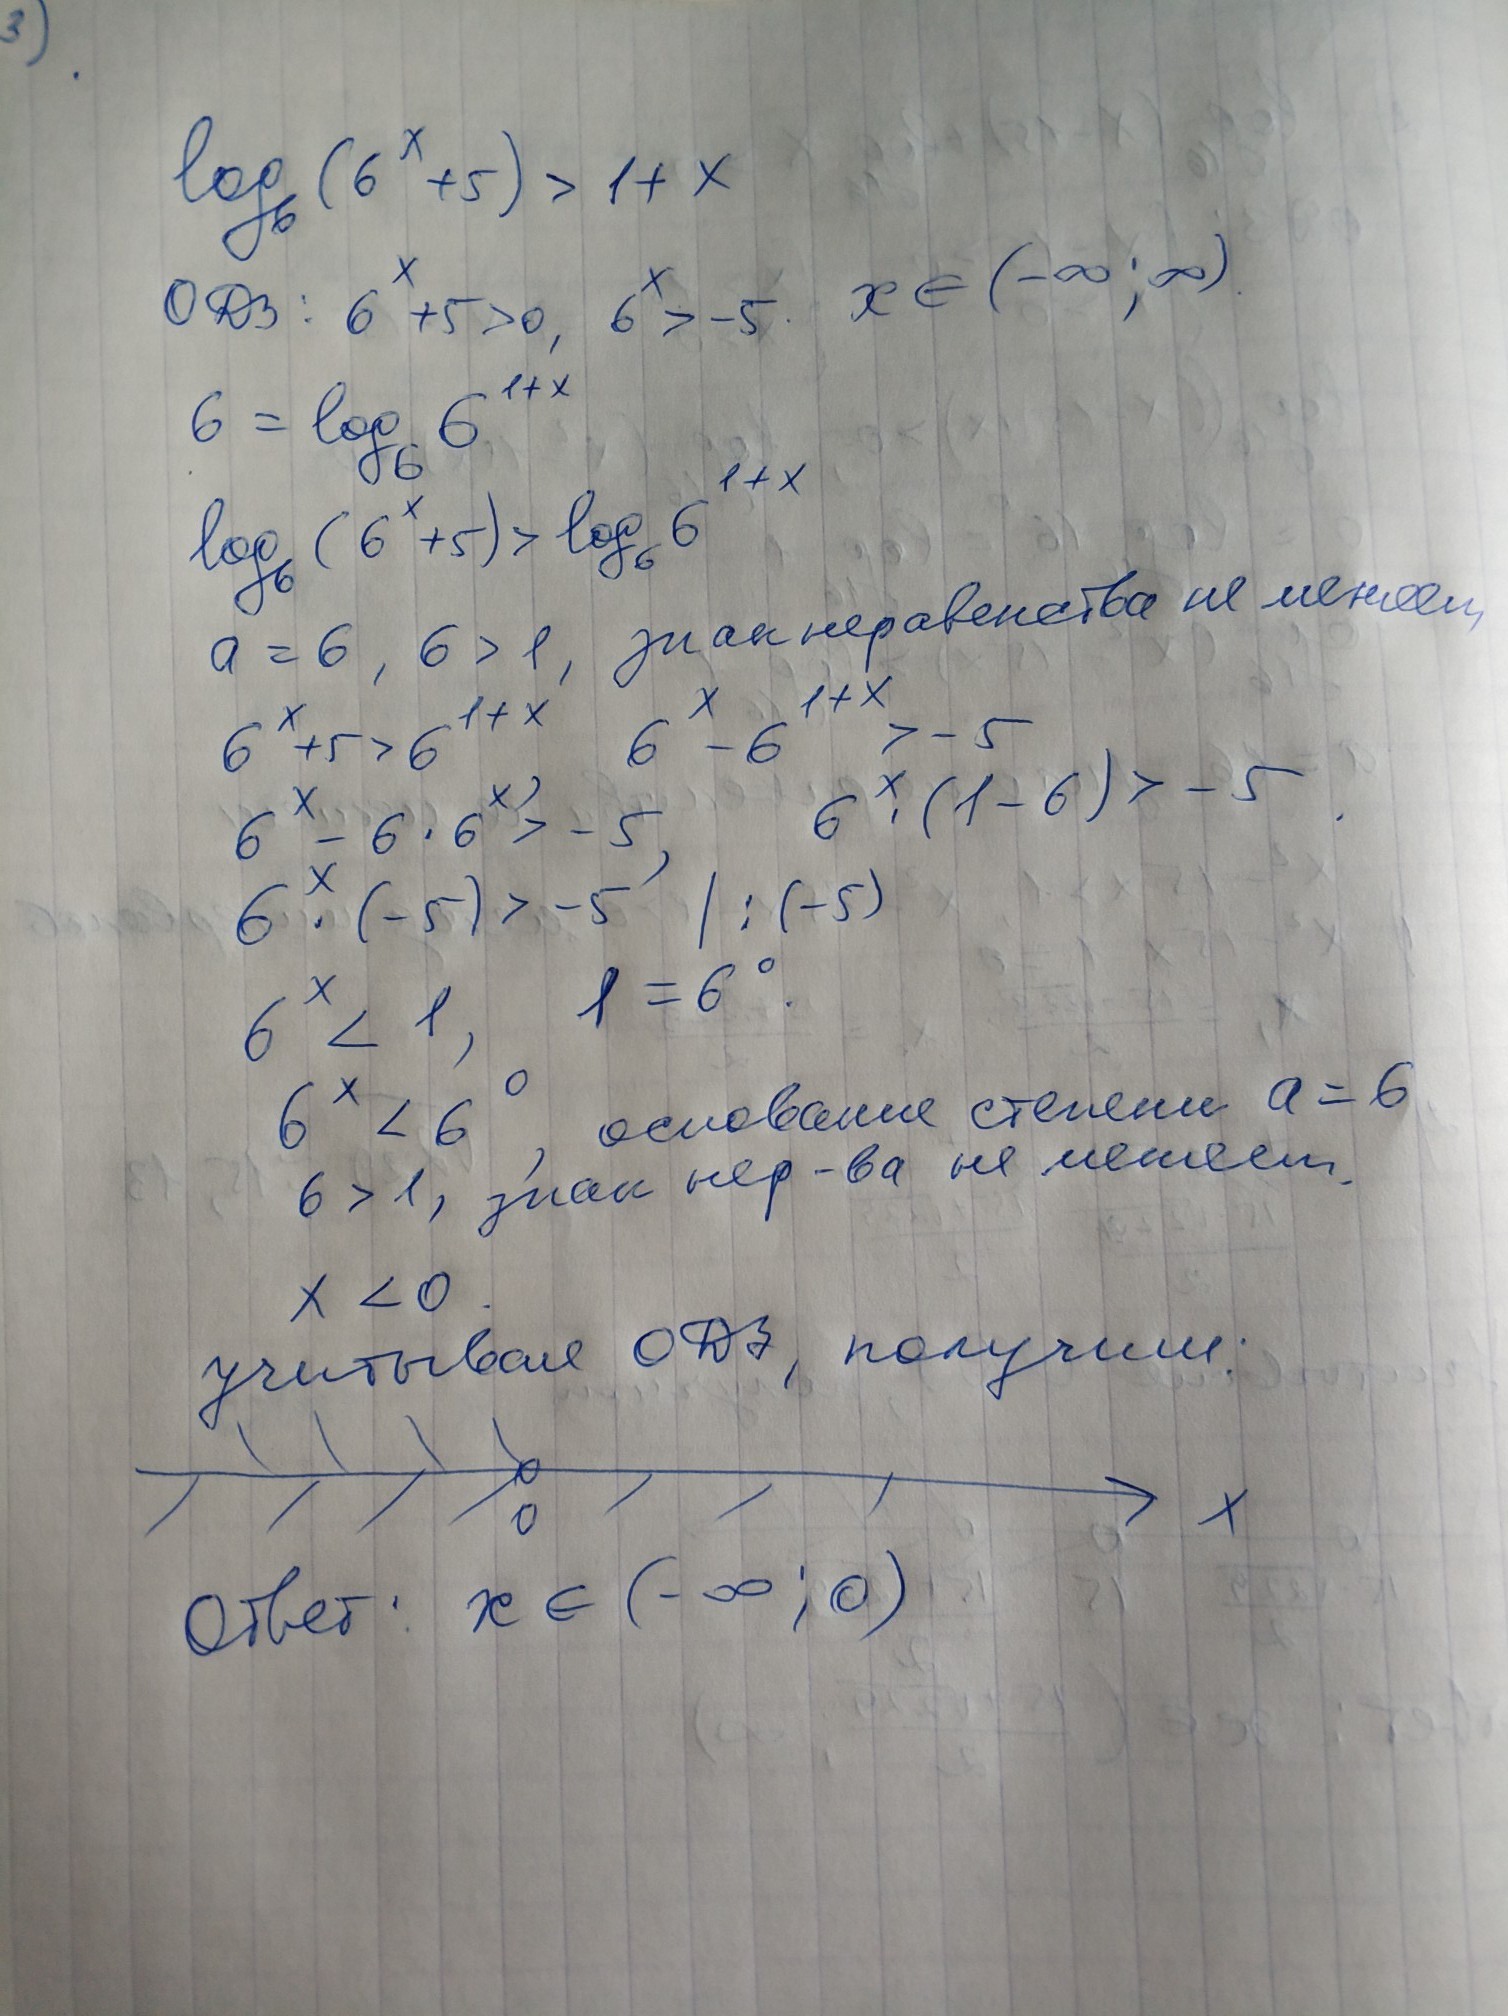 3).
log₆(6ˣ+5) > 1+x
ОДЗ: 6ˣ+5>0, 6ˣ>-5. x∈(-∞;∞).
6 = log₆6¹⁺ˣ
log₆(6ˣ+5) > log₆6¹⁺ˣ
a=6, 6>1, знак неравенства не меняем
6ˣ+5>6¹⁺ˣ, 6ˣ-6¹⁺ˣ>-5
6ˣ-6·6ˣ>-5, 6ˣ·(1-6)>-5.
6ˣ·(-5)>-5 /:(-5)
6ˣ<1, 1=6⁰.
6ˣ<6⁰, основание степени a=6
6>1, знак нер-ва не меняем.
x<0.
учитывая ОДЗ, получим:
0
x
Ответ: x∈(-∞;0)